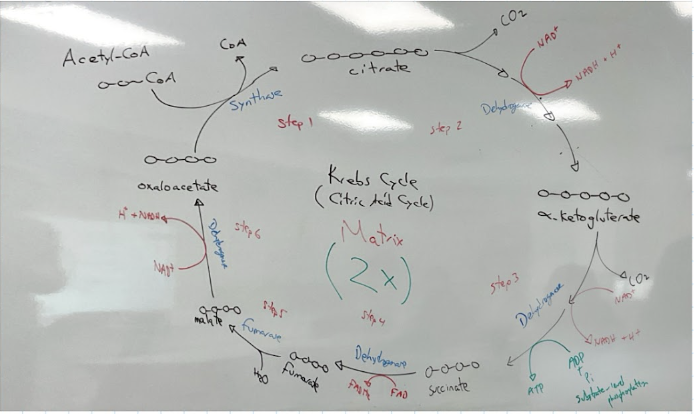 Acetyl-CoA
CoA
CoA
Synthase
Step 1
citrate
CO2
NAD+
NADH + H+
Dehydrogenase
Step 2
α-Ketogluterate
CO2
NAD+
NADH + H+
Dehydrogenase
Step 3
ADP
+
Pi
ATP
Substrate-level
phosphorylation
succinate
Dehydrogenase
FAD
FADH2
Step 4
Fumarate
H2O
Fumarase
Step 5
malate
Dehydrogenase
NAD+
H+ + NADH
Step 6
oxaloacetate
Krebs Cycle
(Citric Acid Cycle)
Matrix
(2x)